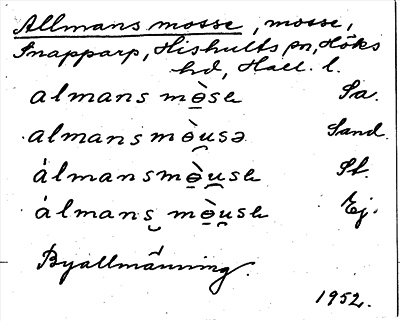 Allmans mosse, mosse,
Snapparp, Hishults sn, Höks
hd, Hall. l.
almans mò̲sɘ Sa.
almans mò̲u̯sə Sand.
álmansmò̲u̯sɘ St.
álmans̯ mò̲u̯sɘ Ej.
Byallmänning.
1952.